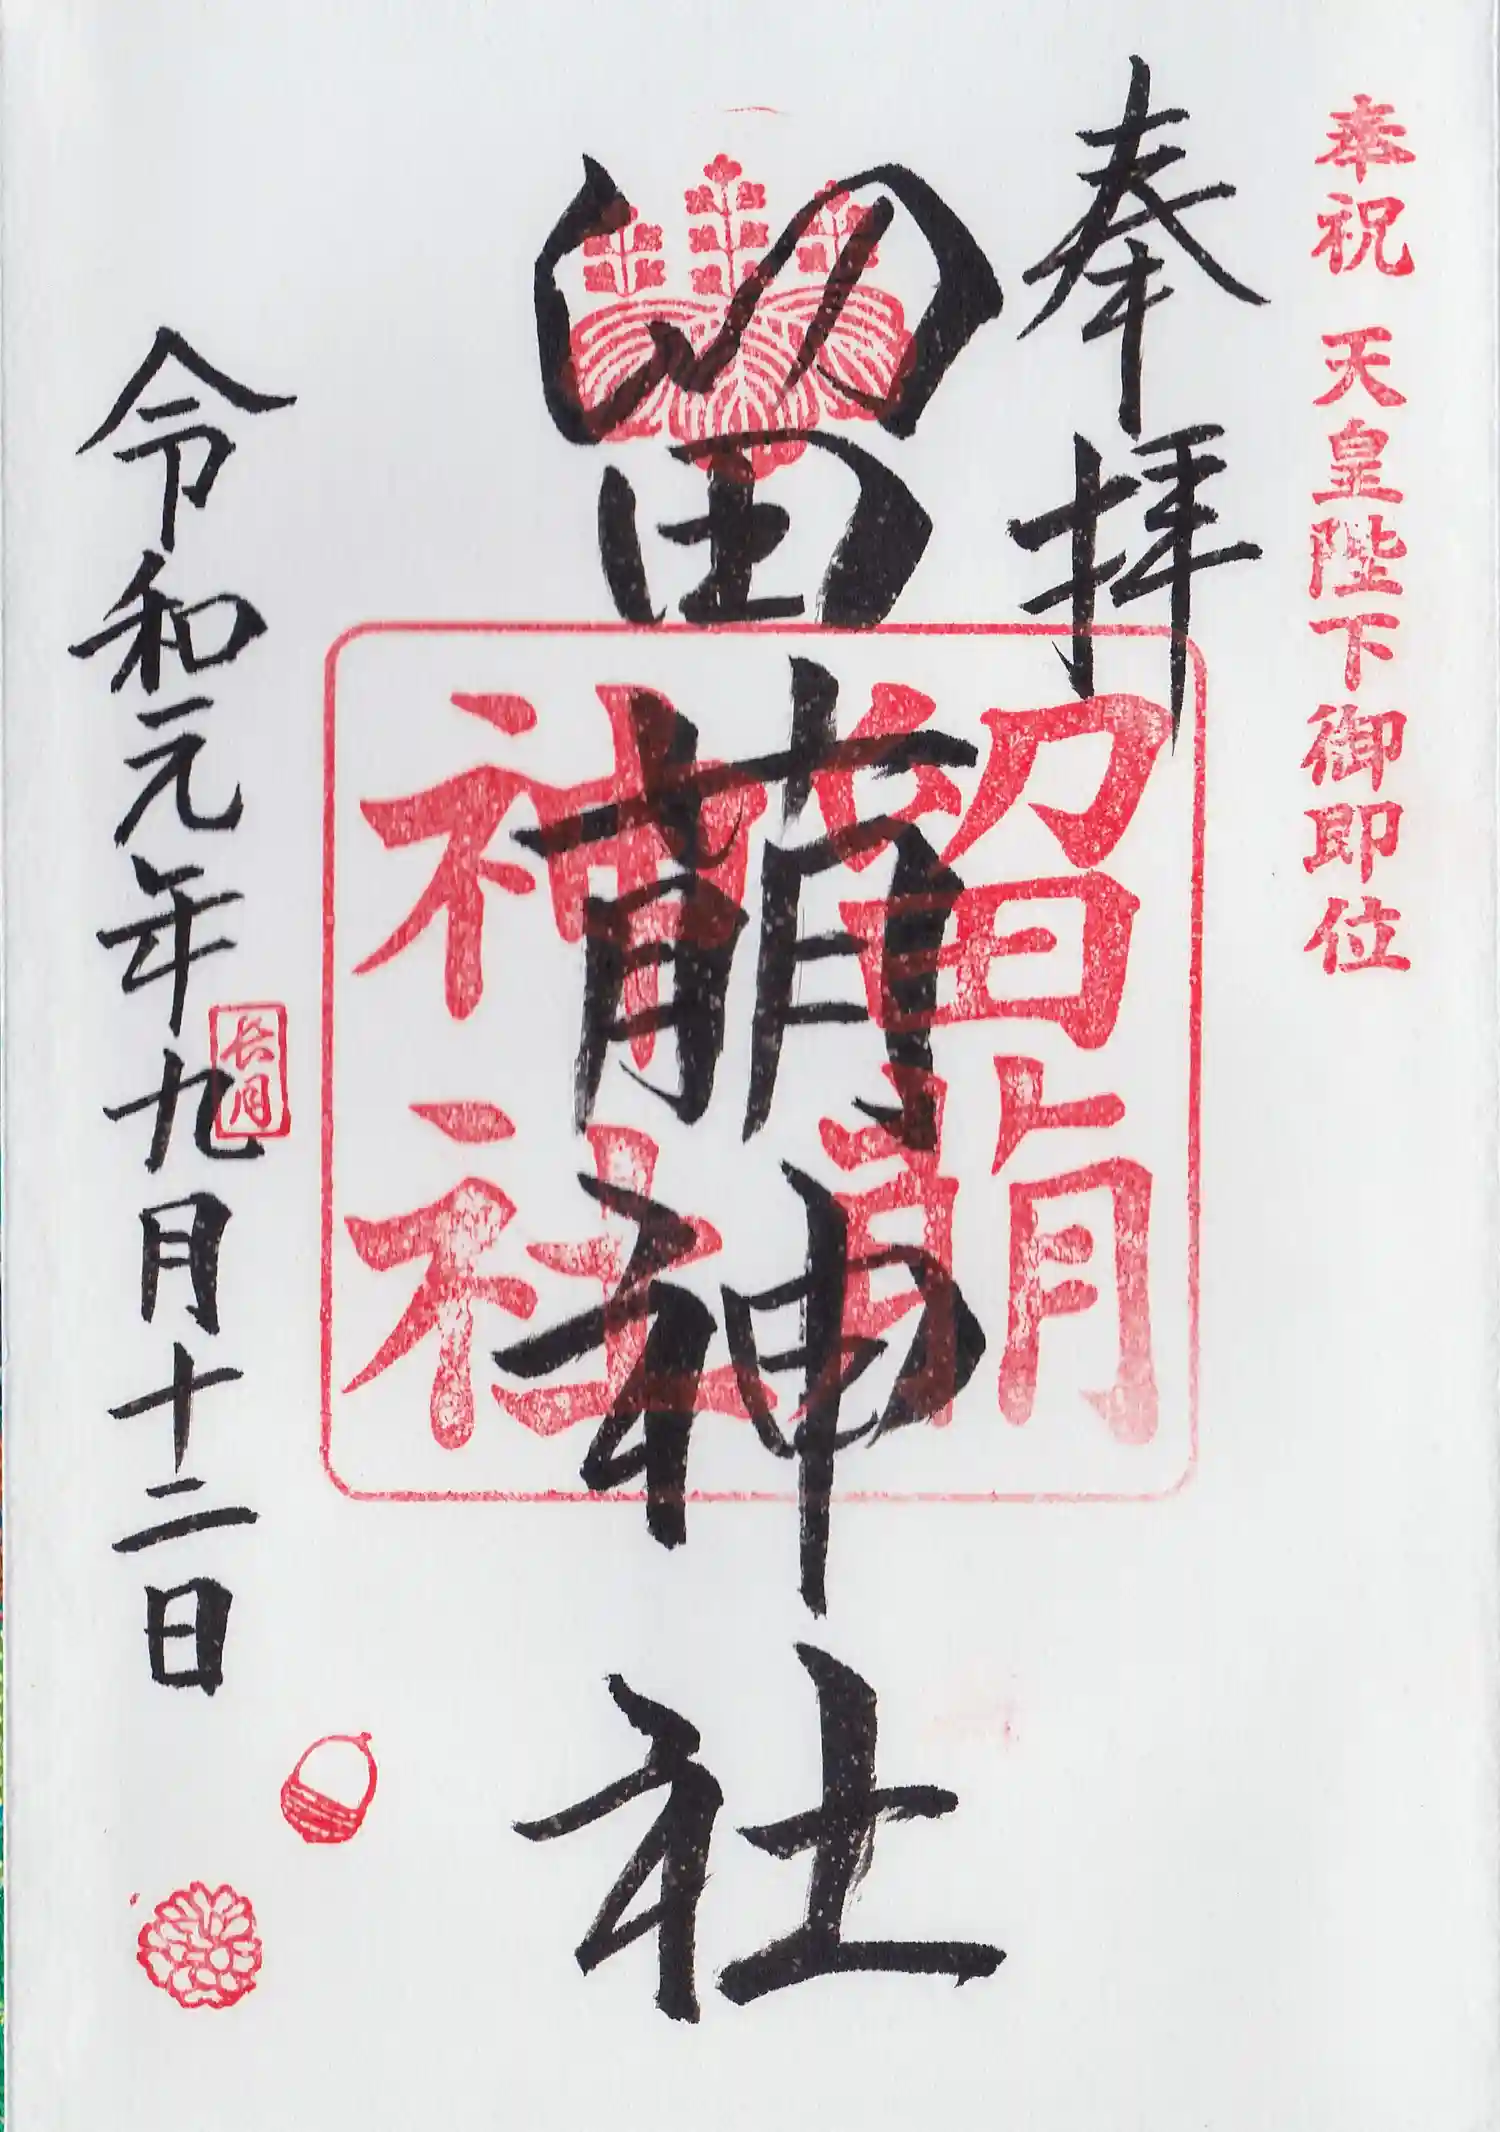 奉祝 天皇陛下御即位
奉拝
留萠神社
留萠
神社
長月
令和元年九月十二日